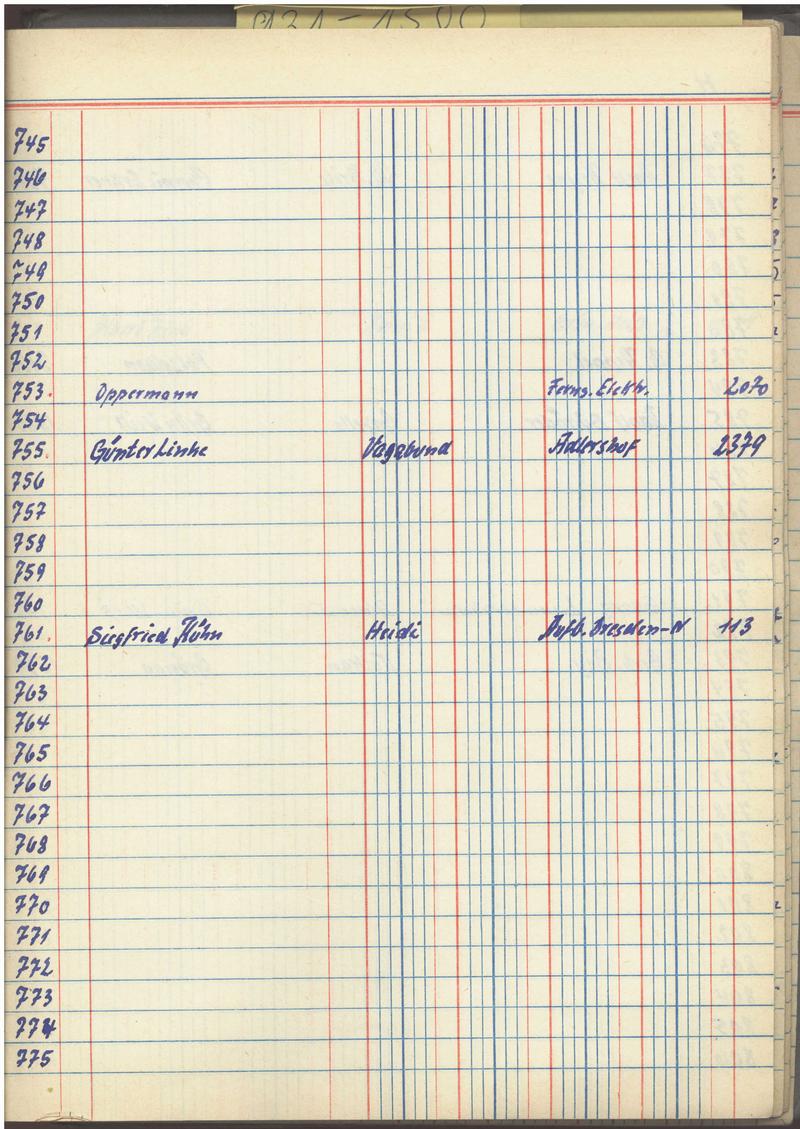 931-1500
745
746
747
748
749
750
751
752
753. Oppermann Ferns. Elektr. 2070
754
755. Günter Linke Vagabund Adlershof 2379
756
757
758
759
760
761. Siegfried Kühn Heidi Aufb. Dresden-N 113
762
763
764
765
766
767
768
769
770
771
772
773
774
775